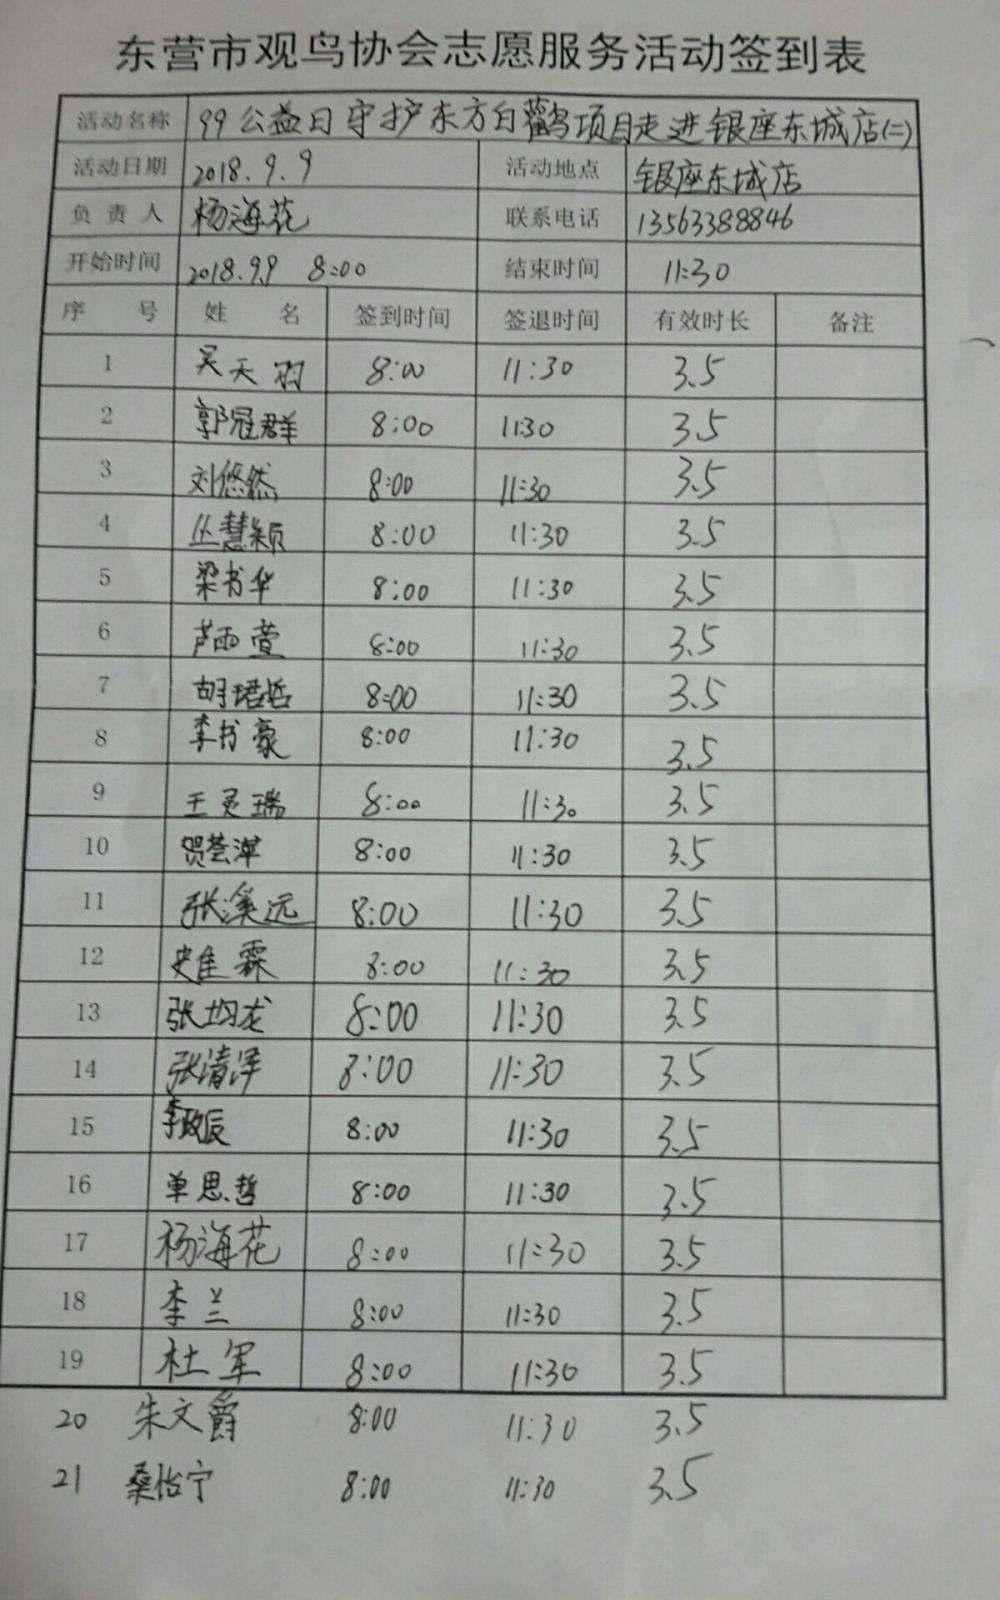 东营市观鸟协会志愿服务活动签到表
活动名称 99公益日守护东方白鹳项目走进银座东城店(二)
活动日期 2018.9.9 活动地点 银座东城店
负责人 杨海花 联系电话 13563388846
开始时间 2018.9.9 8:00 结束时间 11:30
序号 姓名 签到时间 签退时间 有效时长 备注
1 吴天羽 8:00 11:30 3.5
2 郭冠群 8:00 11:30 3.5
3 刘悠然 8:00 11:30 3.5
4 丛慧颖 8:00 11:30 3.5
5 梁书华 8:00 11:30 3.5
6 芦雨萱 8:00 11:30 3.5
7 胡珺哲 8:00 11:30 3.5
8 李书豪 8:00 11:30 3.5
9 王灵瑞 8:00 11:30 3.5
10 贺荟萍 8:00 11:30 3.5
11 张溪远 8:00 11:30 3.5
12 史隹霖 8:00 11:30 3.5
13 张均龙 8:00 11:30 3.5
14 张清泽 8:00 11:30 3.5
15 李政辰 8:00 11:30 3.5
16 单思哲 8:00 11:30 3.5
17 杨海花 8:00 11:30 3.5
18 李兰 8:00 11:30 3.5
19 杜军 8:00 11:30 3.5
20 朱文爵 8:00 11:30 3.5
21 桑怡宁 8:00 11:30 3.5